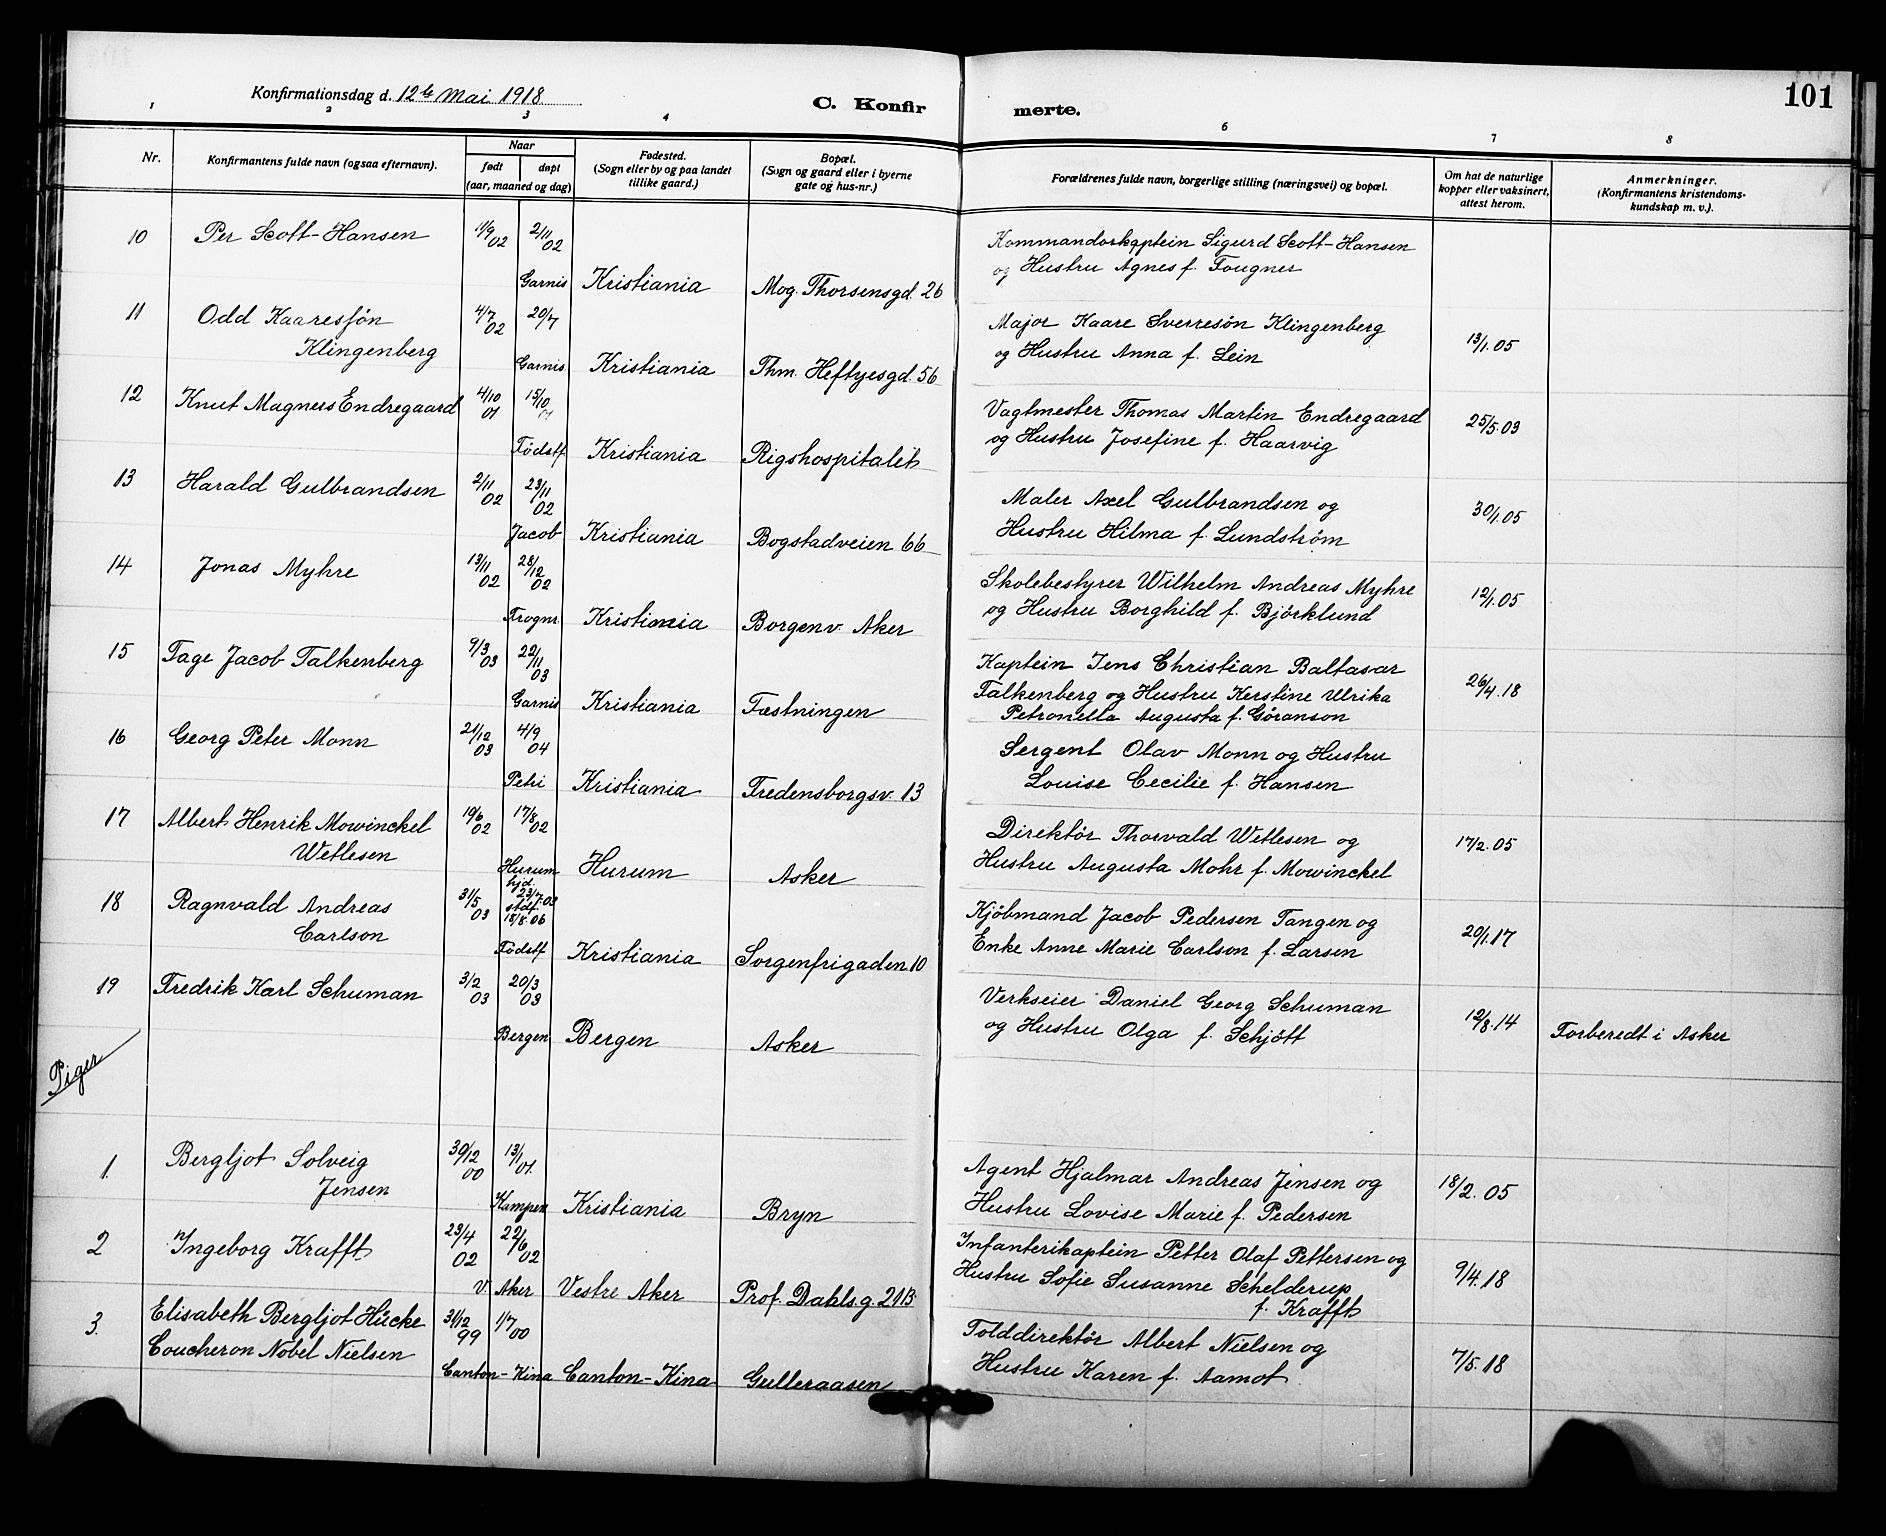 Konfirmationsdag d. 12te Mai 1918
C. Konfirmerte.
101
1 2 3 4 6 7 8
Nr.
Konfirmantens fulde navn (ogsaa efternavn).
Naar
født døpt
(aar, maaned og dag)
Fødested.
(Sogn eller by og paa landet
tillike gaard.)
Bopæl.
(Sogn og gaard eller i byerne
gate og hus-nr.)
Forældrenes fulde navn, borgerlige stilling (næringsvei) og bopæl.
Om hat de naturlige
kopper eller vaksinert,
attest herom.
Anmerkninger.
(Konfirmantens kristendoms-
kundskap m. v.).
10 Per Scott-Hansen 4/9 02 2/11 02 Kommandörkaptein Sigurd Scott-Hansen
og Hustru Agnes f. Fougner
Garnis Kristiania Mog. Thorsensgd. 26
11 Odd Kaaresjön 4/7 02 20/7 Major Kaare Sverresön Klingenberg
Klingenberg og Hustru Anna f. Lein 13/1.05
Garnis. Kristiania Thm. Heftyesgd. 56
12 Knut Magners Endregaard 4/10 01 15/10 01 Vagtmester Thomas Martin Endregaard
og Hustru Josefine f. Haarvig 25/5.03
Födstf Kristiania Rigshospitalet
13 Harald Gulbrandsen 2/11 02 23/11 02 Maler Axel Gulbrandsen og
Hustru Hilma f. Lundström 30/1.05
Jacob Kristiania Bogstadveien 66
14 Jonas Myhre 13/11 02 28/12 02 Skolebestyrer Wilhelm Andreas Myhre
og Hustru Borghild f. Björklund 12/1.05
Frognr. Kristiania Borgenv. Aker
15 Tage Jacob Falkenberg 9/3 03 22/11 03 Kaptein Jens Christian Baltasar
Falkenberg og Hustru Kerstine Ulrika 26/4.18
Petronella Augusta f. Göranson
Garnis Kristiania Fæstningen
16 Georg Peter Monn 21/12 03 4/9 04 Sergent Olav Monn og Hustru
Louise Cecilie f. Hansen
Petri Kristiania Fredensborgsv. 13
17 Albert Henrik Mowinckel 19/6 02 17/8 02 Direktör Thorvald Wetlesen og
Wetlesen Hustru Augusta Mohr f. Mowinckel 17/2.05
Hurum Hurum Asker
18 Ragnvald Andreas 31/5 03 hjd. 23/7.03 stdf. 18/8.06 Kjöbmand Jacob Pedersen Tangen og
Carlson Enke Anne Marie Carlson f. Larsen 20/1.17
Födstf Kristiania Sorgenfrigaden 10
19 Fredrik Karl Schuman 3/2 03 20/3 03 Verkseier Daniel Georg Schuman
og Hustru Olga f. Schjött 12/8.14 Forberedt i Asker
Bergen Bergen Asker
Piger
1. Bergljot Solveig 30/12 00 13/1 01. Agent Hjalmar Andreas Jensen og
Jensen Hustru Lovise Marie f. Pedersen 18/2.05
Kampen Kristiania Bryn
2 Ingeborg Krafft 23/4 02 22/6 02 Infanterikaptein Petter Olaf Pettersen og
Hustru Sofie Susanne Schelderup 9/4.18
f. Krafft
V. Aker Vestre Aker Prof. Dahls.g. 21B
3. Elisabeth Bergljot Hücke 31/12 99 1/7 00 Tolddirektör Albert Nielsen og
Coucheron Nobel Nielsen Hustru Karen f. Aamot. 7/5.18
Canton-Kina Canton-Kina Gulleraasen